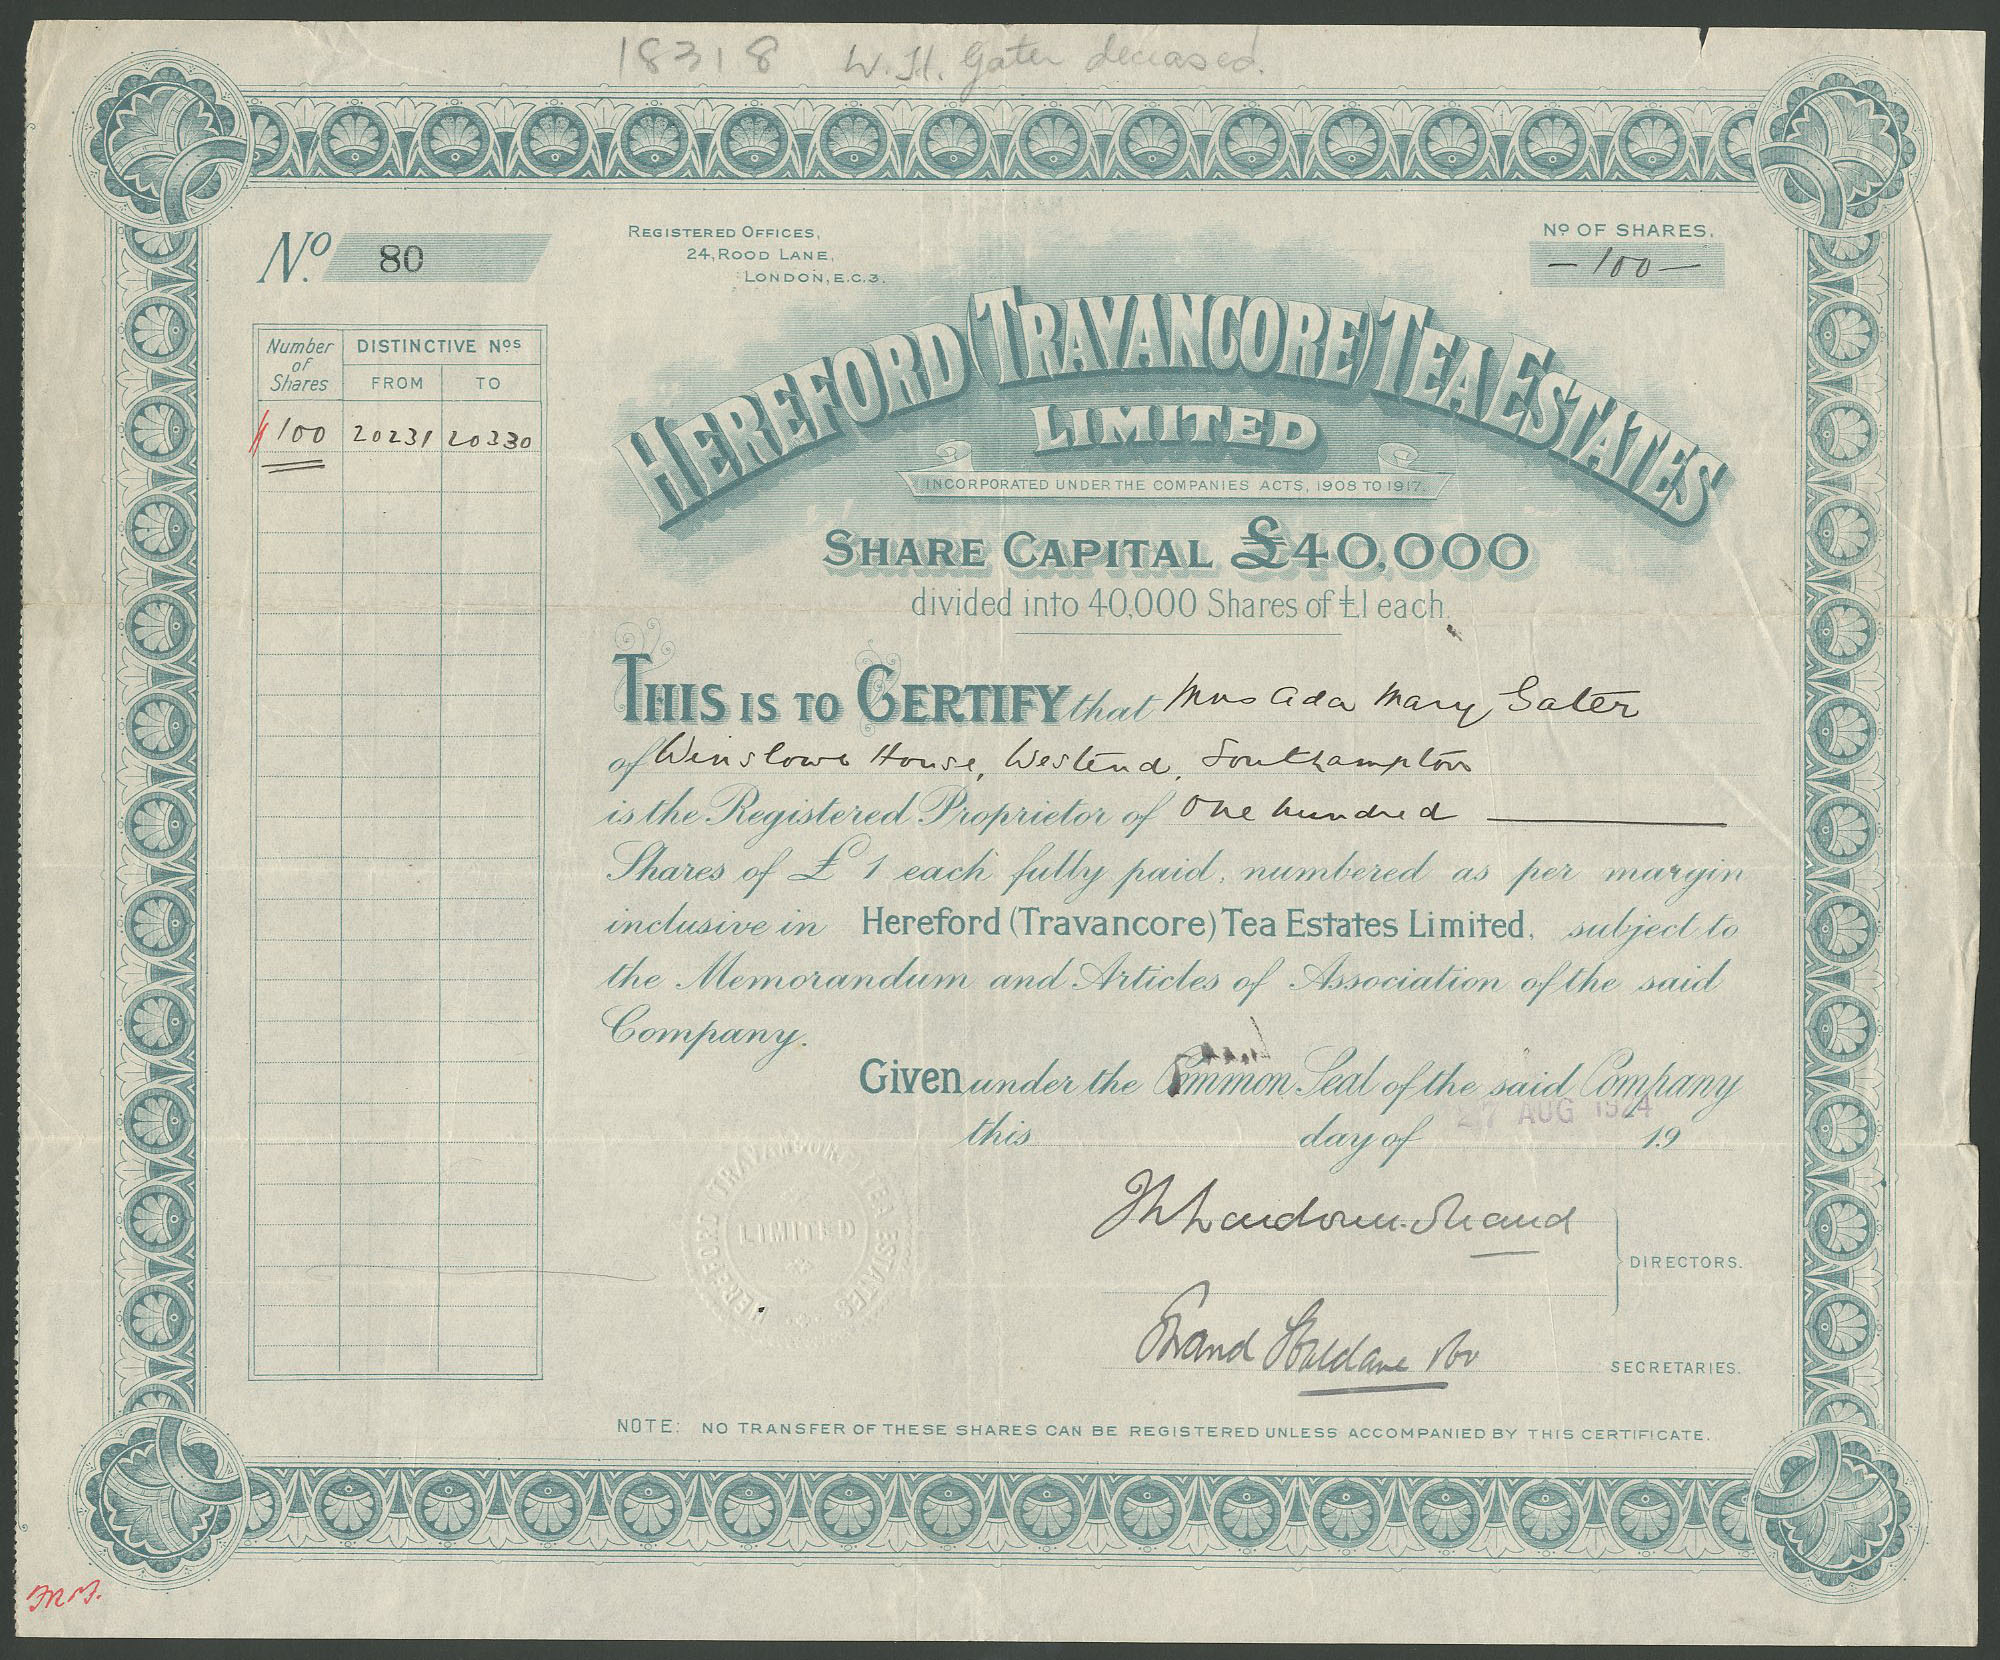 18318 W. H. Gater deceased.
No. 80
REGISTERED OFFICES,
24, ROOD LANE,
LONDON, E.C.3.
No OF SHARES.
— 100 —
HEREFORD (TRAVANCORE) TEA ESTATES
LIMITED
INCORPORATED UNDER THE COMPANIES ACTS, 1908 TO 1917.
SHARE CAPITAL £40,000
divided into 40,000 Shares of £1 each.
Number of Shares DISTINCTIVE Nos
FROM TO
100 20231 20330
THIS IS TO CERTIFY that Mrs Ada Mary Gater
of Winslowe House, Westend, Southampton
is the Registered Proprietor of One hundred
Shares of £1 each fully paid, numbered as per margin
inclusive in Hereford (Travancore) Tea Estates Limited, subject to
the Memorandum and Articles of Association of the said
Company.
Given under the Common Seal of the said Company
27 AUG 1924
this day of 19
HEREFORD TRAVANCORE TEA ESTATES
LIMITED
DIRECTORS.
Shand Haldane
SECRETARIES.
NOTE: NO TRANSFER OF THESE SHARES CAN BE REGISTERED UNLESS ACCOMPANIED BY THIS CERTIFICATE.